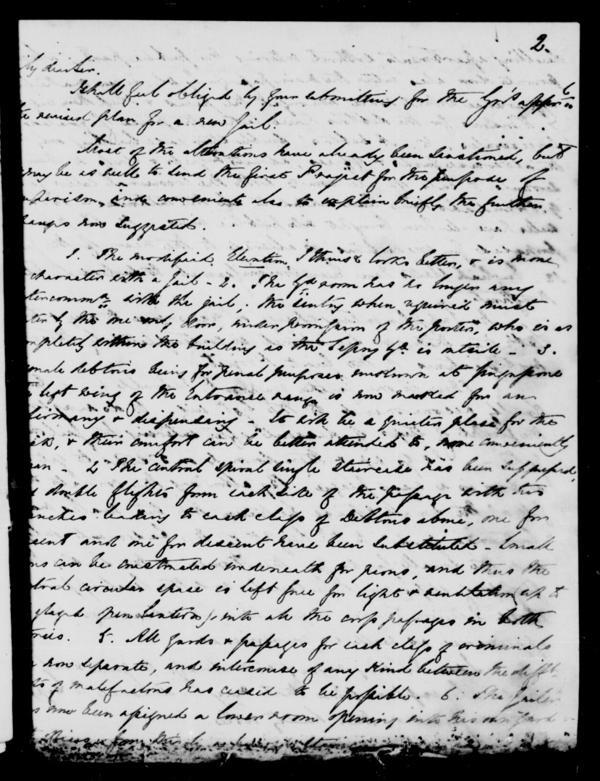 2.
My dear Sir.
I shall feel obliged by your submitting for the Gov's approv
the revised plan for a new Jail.
Most of the alterations have already been sanctioned, but
may be as well to send the first Project for the purpose of
and convenient also to explain briefly the further
changes now suggested.
1. The modified Elevation, I think looks better, & is more
character with a Jail – 2. The Gd room has no longer any
intercommn with the jail. The Sentry when required must
by the door, under permission of the porter, who is as
completely within the building as the is outside – 3.
Female debtors being for penal purposes unknown at Singapore
left wing of the Entrance range is now marked for an
& dispensing – to be a quieter place for the
sick, & their comfort can be better attended to, more conveniently
– 4 The central spiral single staircase has been suppressed,
double flights from each side of the passage with
branches leading to each class of Debtors above, one for
ascent and one for descent have been substituted – Small
can be constructed underneath for and thus the
central circular space is left free for light & ventilation up to
glazed open Lantern, into all the cross passages in both
stories. 5. All yards & passages for each class of criminals
now separate, and intercourse of any kind between the difft
of malefactors has ceased to be possible. 6. The Jailer
now been assigned a lower room opening into his own yard